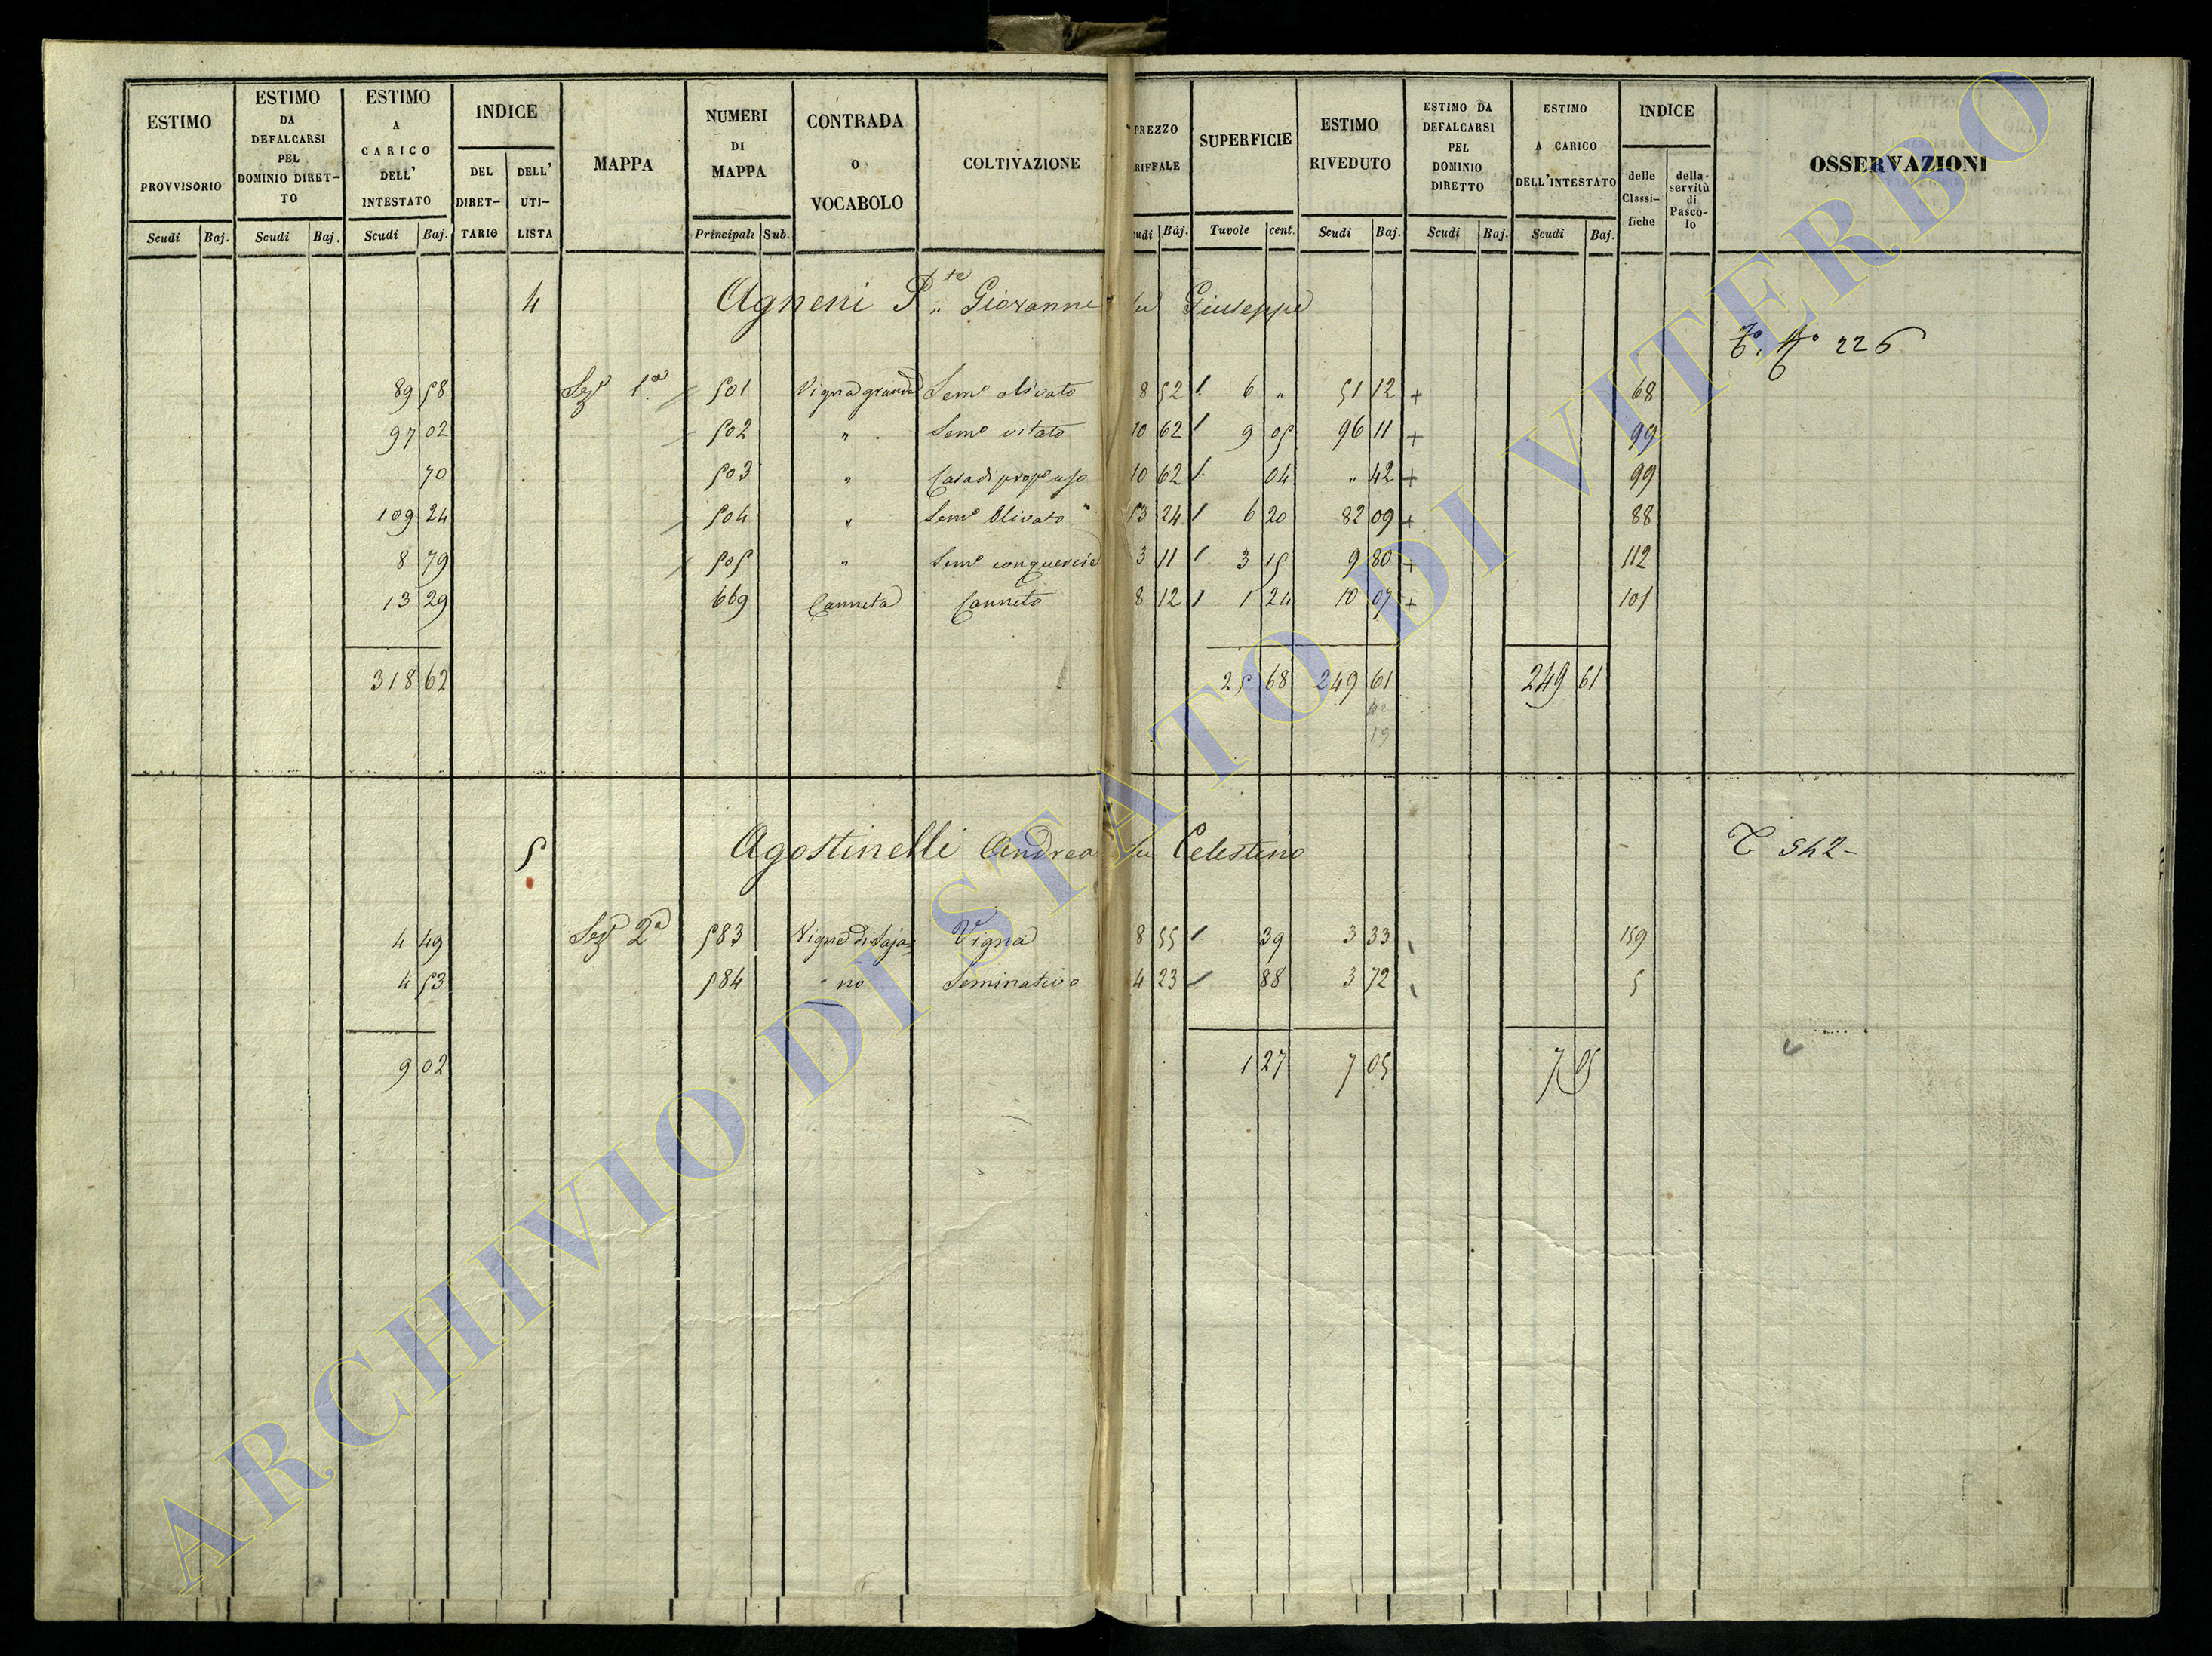 ESTIMO PROVVISORIO Scudi Baj.
ESTIMO DA DEFALCARSI PEL DOMINIO DIRET- TO Scudi Baj.
ESTIMO A CARICO DELL' INTESTATO Scudi Baj.
INDICE DEL DIRET- TARIO DELL' UTI- LISTA
MAPPA
NUMERI DI MAPPA Principali Sub.
CONTRADA O VOCABOLO
COLTIVAZIONE
PREZZO RIFFALE udi Baj.
SUPERFICIE Tavole cent.
ESTIMO RIVEDUTO Scudi Baj.
ESTIMO DA DEFALCARSI PEL DOMINIO DIRETTO Scudi Baj.
ESTIMO A CARICO DELL'INTESTATO Scudi Baj.
INDICE delle Classi- fiche della servitù di Pasco- lo
OSSERVAZIONI
4 Agneni P.te Giovanne fu Giuseppe
226
89 58 Sez.e 1.a 501 Vigna grande Sem.o olivato 8 52 6 " 51 12 + 68
97 02 502 " Sem.o vitato 10 62 9 05 96 11 + 99
70 503 " Casa di prop.o uso 10 62 04 " 42 + 99
109 24 504 " Sem.o Olivato 13 24 6 20 82 09 + 88
8 79 505 " Sem.o con quercie 3 11 3 15 9 80 + 112
13 29 669 Canneta Canneto 8 12 1 24 10 07 + 101
318 62 25 68 249 61 249 61
19
5 Agostinelli Andrea fu Celestino T 542-
4 49 Sez.e 2.a 583 Vigna di Saja= Vigna 8 55 39 3 33 159
4 53 584 no Seminativo 4 23 88 3 72 5
9 02 1 27 7 05 7 05
ARCHIVIO DI STATO DI VITERBO